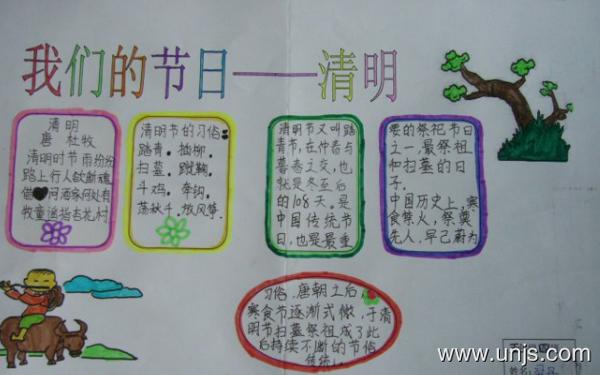 我们的节日——清明
清明
唐 杜牧
清明时节雨纷纷
路上行人欲断魂
借 问酒家何处有
牧童遥指杏花村
清明节的习俗:
踏青。插柳。
扫墓。蹴鞠。
斗鸡。牵钩。
荡秋千。放风筝。
清明节又叫踏
青节,在仲春与
暮春之交,也
就是冬至后
的108天。是
中国传统节
日,也是最重
要的祭祀节日
之一,最祭祖
和扫墓的日
子。
中国历史上,寒
食禁火,祭奠
先人,早已蔚为
习俗,唐朝之后,
寒食节逐渐式微,于清
明节扫墓祭祖成了此
后持续不断的节俗
传统。
姓名:
www.unjs.com